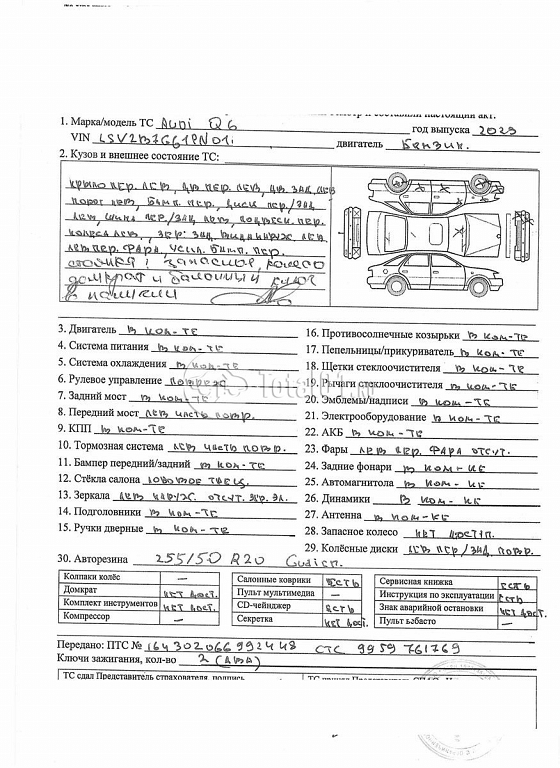 1. Марка/модель ТС Audi Q6 год выпуска 2023
VIN LSV2B7G61PN01 двигатель Бензин.
2. Кузов и внешнее состояние ТС:
крыло пер. лев, дв пер. лев, дв зад. лев
порог лев, бамп. пер., диск пер./зад
лев, шина пер./зад лев, подвеск. пер.
колеса лев, зер. зад. вида наруж. лев
лев пер. фара, усил. бамп. пер.
стойка, запасное колесо
домкрат и балонный ключ
в наличии
3. Двигатель в ком-те
4. Система питания в ком-те
5. Система охлаждения в ком-те
6. Рулевое управление
7. Задний мост в ком-те
8. Передний мост лев часть повр.
9. КПП в ком-те
10. Тормозная система лев часть повр.
11. Бампер передний/задний в ком-те
12. Стёкла салона лобовое
13. Зеркала лев наруж. отсут. зер. эл.
14. Подголовники в ком-те
15. Ручки дверные в ком-те
16. Противосолнечные козырьки в ком-те
17. Пепельницы/прикуриватель в ком-те
18. Щетки стеклоочистителя в ком-те
19. Рычаги стеклоочистителя в ком-те
20. Эмблемы/надписи в ком-те
21. Электрооборудование в ком-те
22. АКБ в ком-те
23. Фары лев пер. фара отсут.
24. Задние фонари в ком-ке
25. Автомагнитола в ком-ке
26. Динамики в ком-ке
27. Антенна в ком-ке
28. Запасное колесо нет дост.
29. Колёсные диски лев пер/зад повр.
30. Авторезина 255/50 R20
Колпаки колёс —
Домкрат нет дост.
Комплект инструментов нет дост.
Компрессор —
Салонные коврики есть
Пульт мультимедиа —
CD-чейнджер есть
Секретка нет дост.
Сервисная книжка есть
Инструкция по эксплуатации есть
Знак аварийной остановки нет дост.
Пульт ьбасто —
Передано: ПТС № 164302066992448 СТС 9959 761769
Ключи зажигания, кол-во 2 (два)
ТС сдал Представитель страхователя, подпись